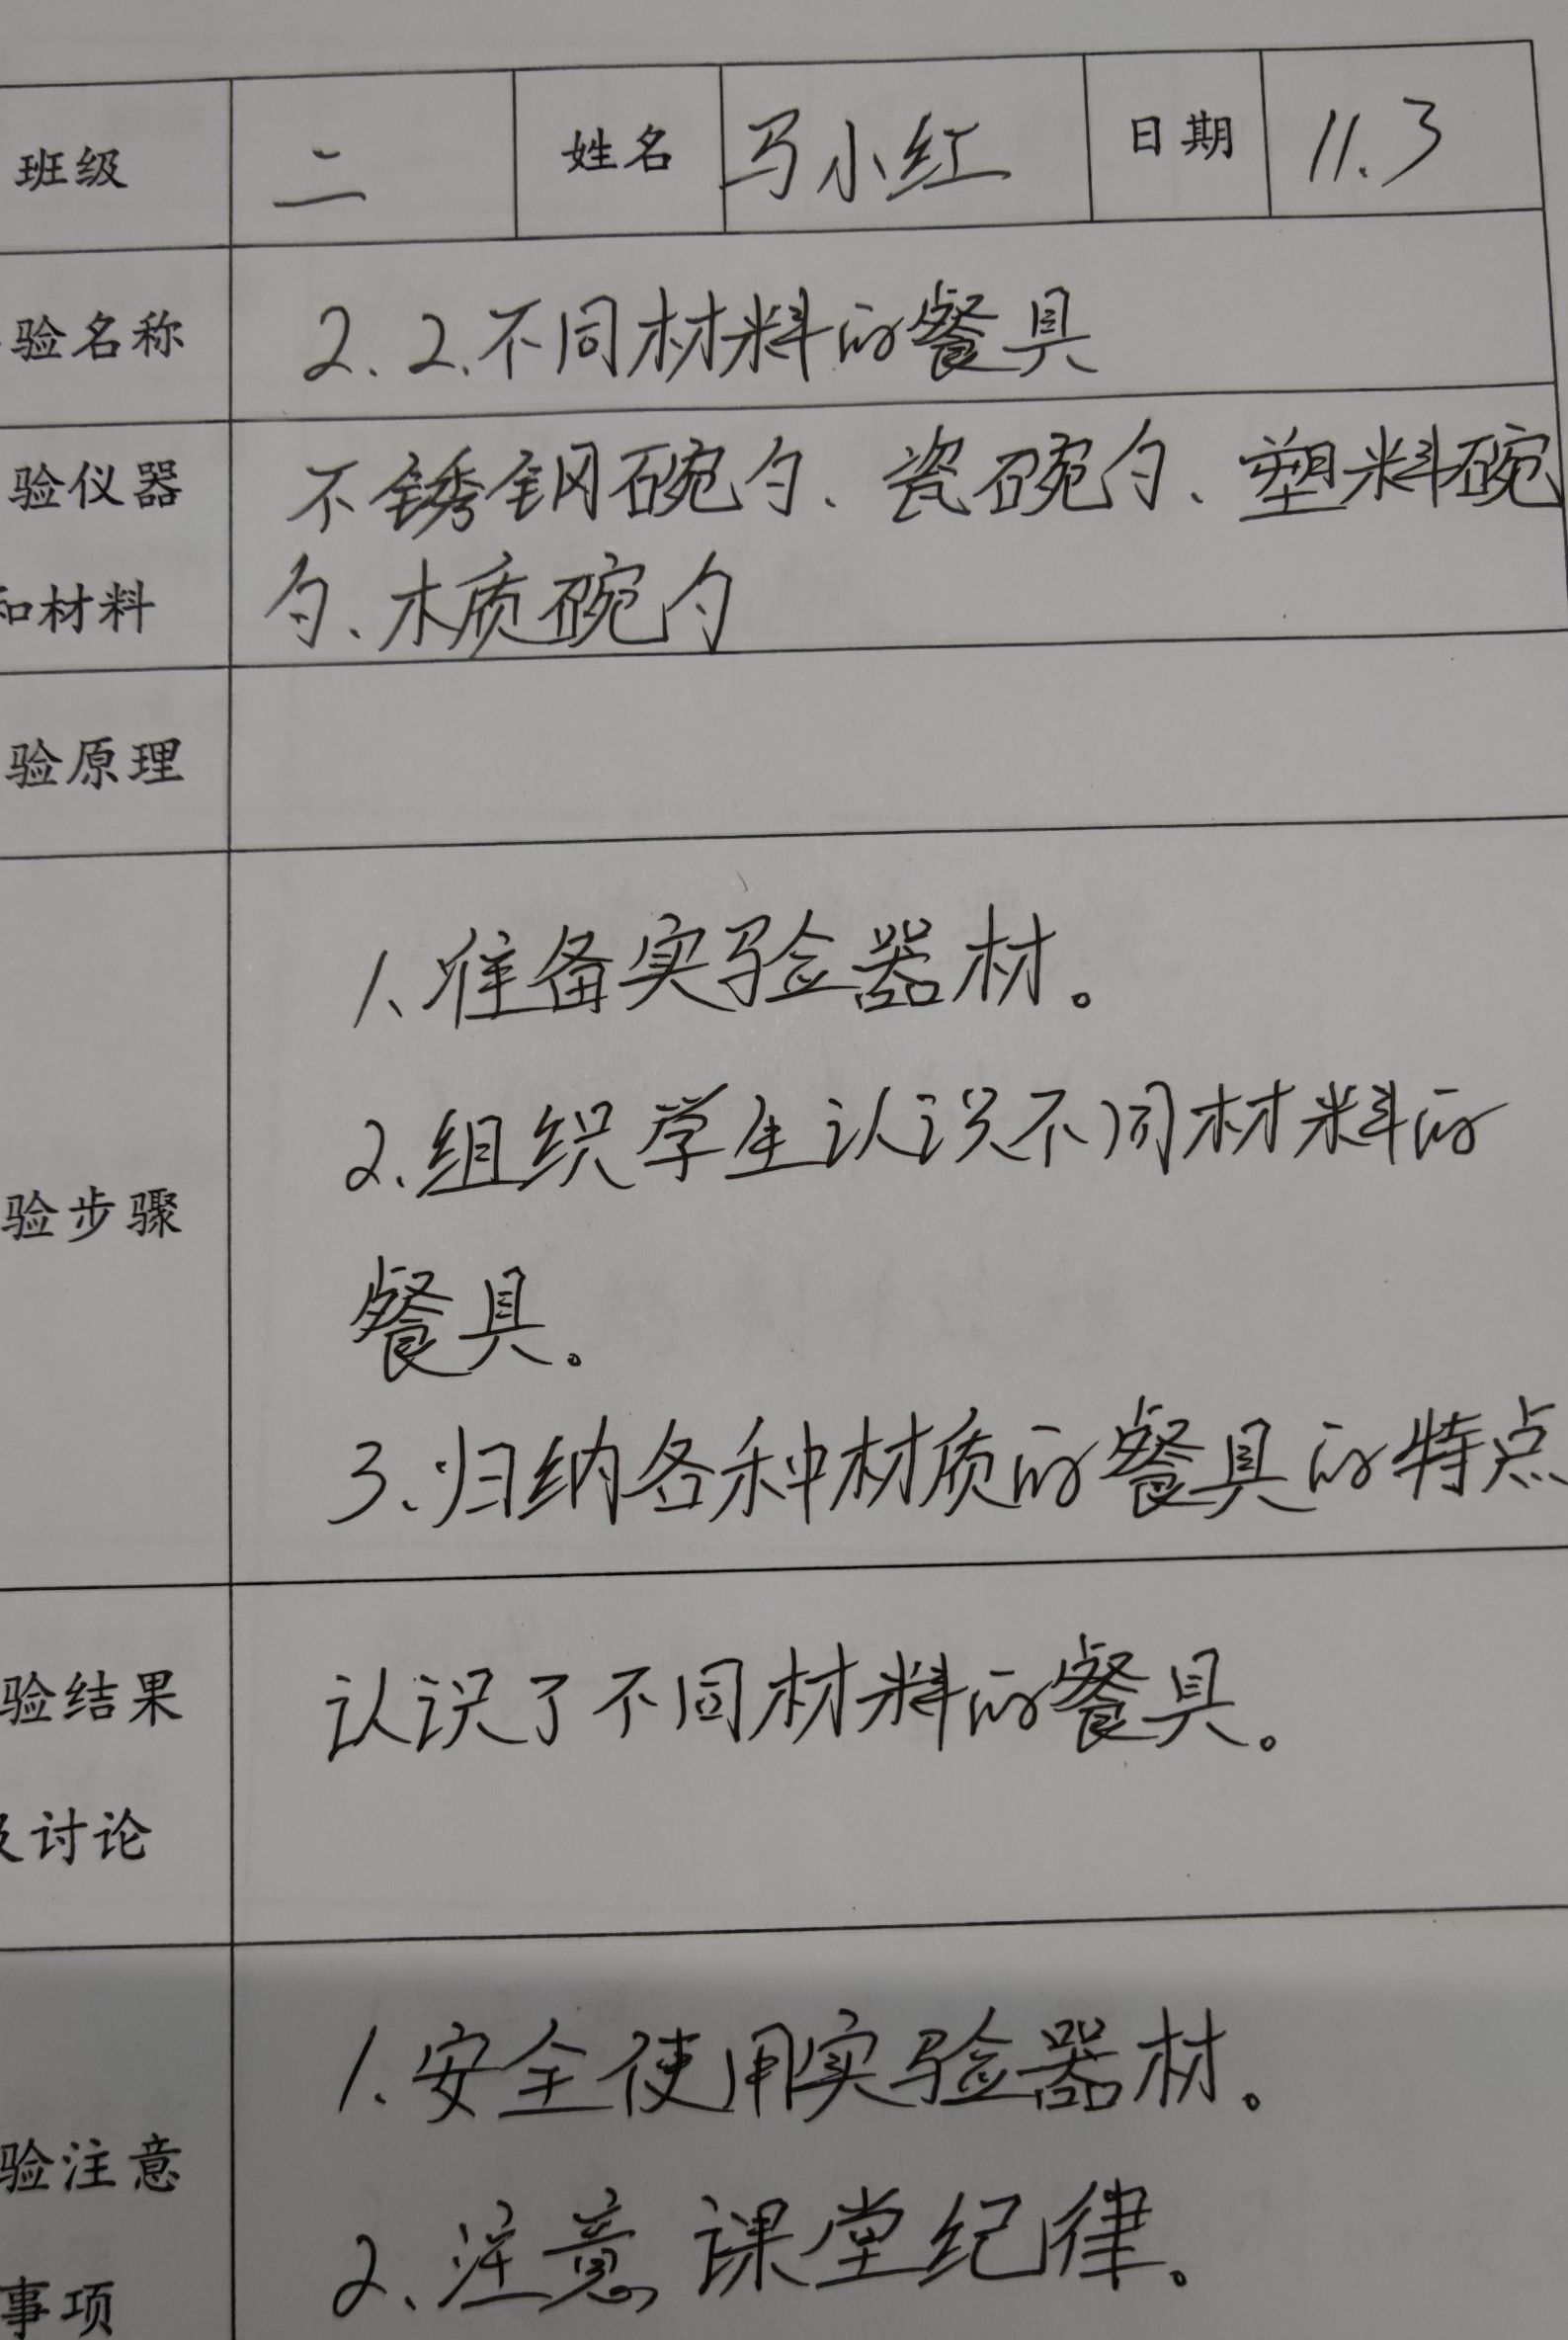 班级 二 姓名 马小红 日期 11.3
验名称 2.2.不同材料的餐具
验仪器 不锈钢碗勺、瓷碗勺、塑料碗
和材料 勺、木质碗勺
验原理
1、准备实验器材。
2.组织学生认识不同材料的
验步骤
餐具。
3、归纳各种材质的餐具的特点
验结果 认识了不同材料的餐具。
及讨论
1.安全使用实验器材。
验注意
2、注意课堂纪律。
事项